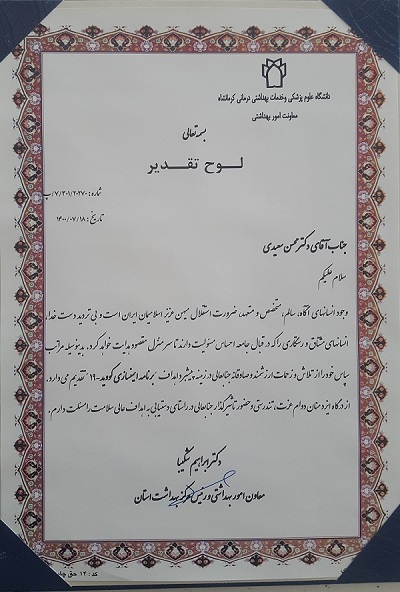 دانشگاه علوم پزشکی و خدمات بهداشتی درمانی کرمانشاه
معاونت امور بهداشتی
بسمه تعالی
لوح تقدیر
شماره: ۷/۳۰۱/۲۰۲۷۰/پ
تاریخ: ۱۴۰۰/۰۷/۱۸
جناب آقای دکتر محسن سعیدی
سلام علیکم
وجود انسانهای آگاه، سالم، متخصص و متعهد، ضرورت استقلال میهن عزیز اسلامیمان ایران است و بی تردید دست خدا،
انسانهای مشتاق و رستگاری را که در قبال جامعه احساس مسئولیت دارند تا سر منزل مقصود هدایت خواهد کرد. بدینوسیله مراتب
سپاس خود را از تلاش و زحمات ارزشمند و صادقانه جنابعالی در زمینه پیشبرد اهداف "برنامه ایمنسازی کووید-۱۹" تقدیم می دارد.
از درگاه ایزد منان دوام عزت، تندرستی و حضور تاثیرگذار جنابعالی در راستای دستیابی به اهداف عالی سلامت را مسئلت دارم.
دکتر ابراهیم شکیبا
معاون امور بهداشتی و رئیس مرکز بهداشت استان
کد: ۱۲ حق چاپ